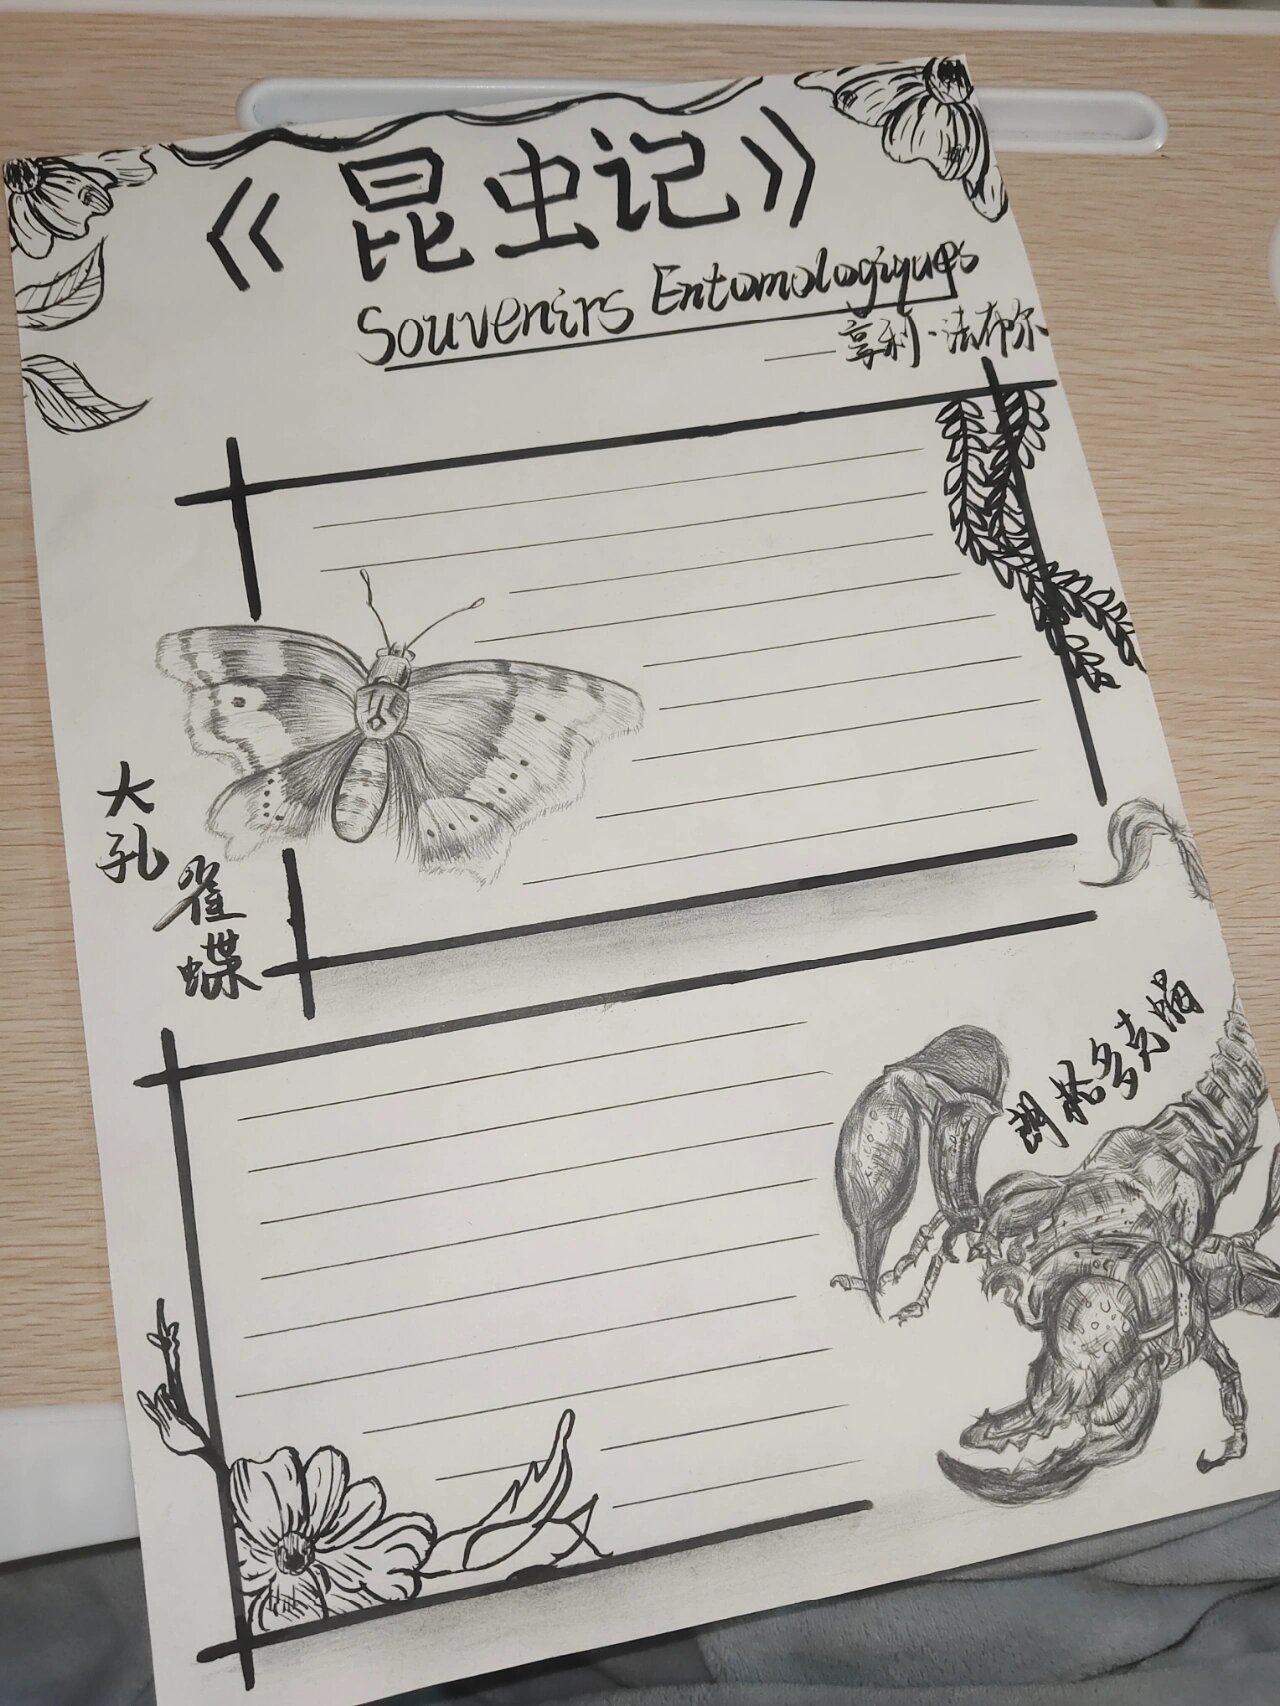 《昆虫记》
Souvenirs Entomologiques
——亨利·法布尔
大孔雀蝶
朗格多克蝎